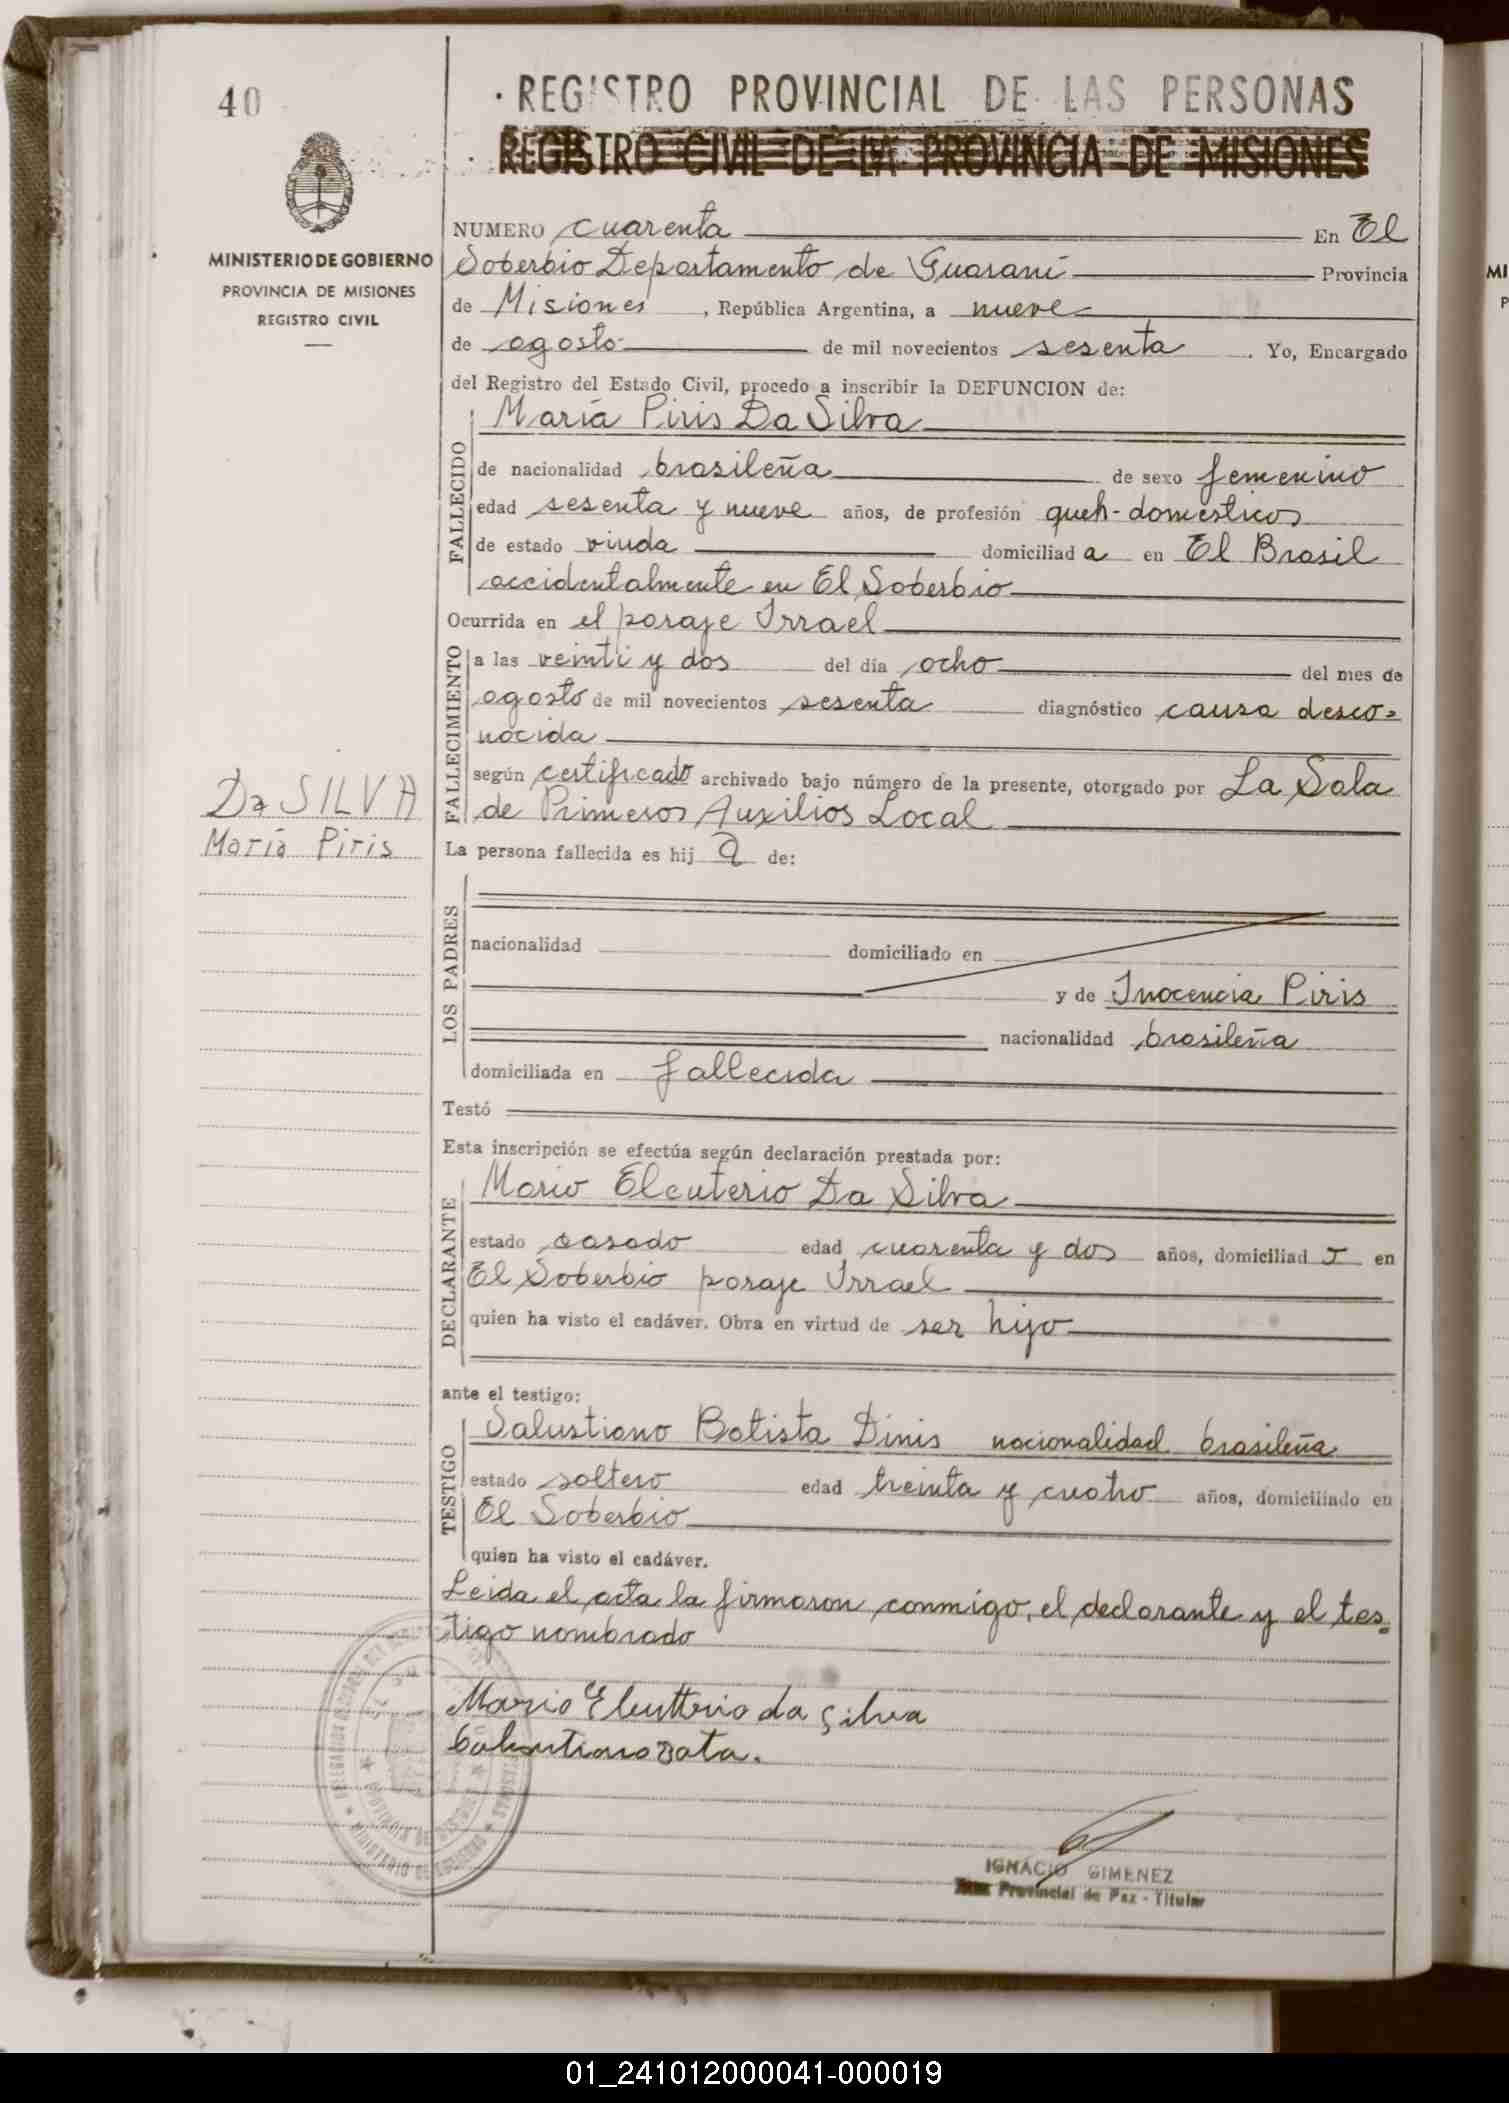 40
· REGISTRO PROVINCIAL DE LAS PERSONAS
REGISTRO CIVIL DE LA PROVINCIA DE MISIONES
MINISTERIO DE GOBIERNO
PROVINCIA DE MISIONES
REGISTRO CIVIL
NUMERO cuarenta En El
Soberbio Departamento de Guaraní Provincia
de Misiones, República Argentina, a nueve
de agosto de mil novecientos sesenta. Yo, Encargado
del Registro del Estado Civil, procedo a inscribir la DEFUNCION de:
FALLECIDO
María Piris Da Silva
de nacionalidad brasileña de sexo femenino
edad sesenta y nueve años, de profesión queh-domésticos
de estado viuda domiciliad a en El Brasil
accidentalmente en El Soberbio
Ocurrida en el paraje Irrael
FALLECIMIENTO
a las veinti y dos del día ocho del mes de
agosto de mil novecientos sesenta diagnóstico causa desco-
nocida
según certificado archivado bajo número de la presente, otorgado por La Sala
de Primeros Auxilios Local
Da SILVA
María Piris
La persona fallecida es hij a de:
LOS PADRES
nacionalidad domiciliado en
y de Inocencia Piris
nacionalidad brasileña
domiciliada en fallecida
Testó
Esta inscripción se efectúa según declaración prestada por:
DECLARANTE
Mario Eleuterio Da Silva
estado casado edad cuarenta y dos años, domiciliad o en
El Soberbio paraje Irrael
quien ha visto el cadáver. Obra en virtud de ser hijo
ante el testigo:
TESTIGO
Salustiano Batista Dinis nacionalidad brasileña
estado soltero edad treinta y cuatro años, domiciliado en
El Soberbio
quien ha visto el cadáver.
Leida el acta la firmaron conmigo, el declarante y el tes-
tigo nombrado
Mario Eleutterio da Silva
IGNACIO GIMENEZ
Provincial de Paz - Titular
MI
P
01_241012000041-000019